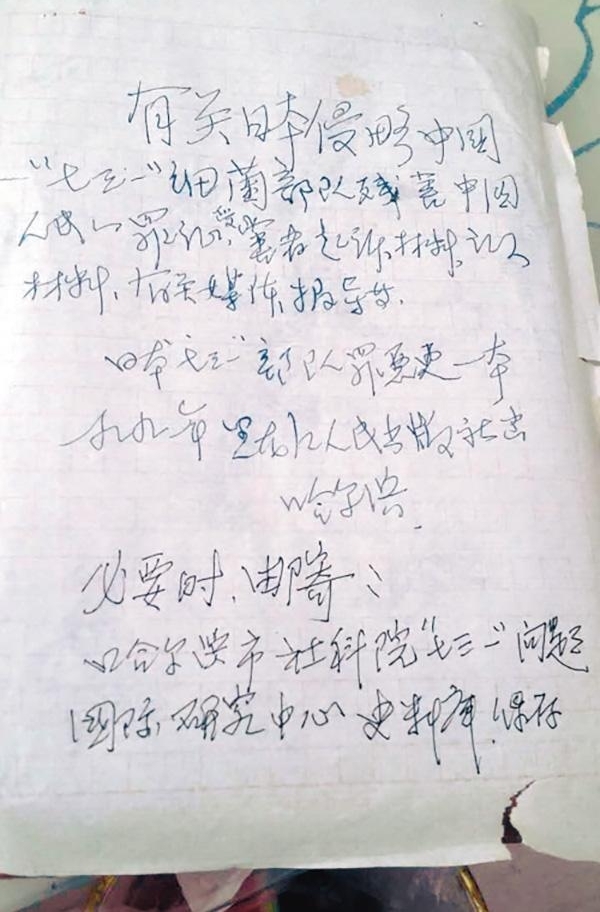 有关日本侵略中国
“七三一”细菌部队残害中国
人民的罪证、受害者起诉材料、证人
材料、有关媒体报导等.
日本七三一部队罪恶史一本
九九年黑龙江人民出版社出
哈尔滨.
必要时,邮寄:
哈尔滨市社科院“七三一”问题
国际研究中心史料库保存